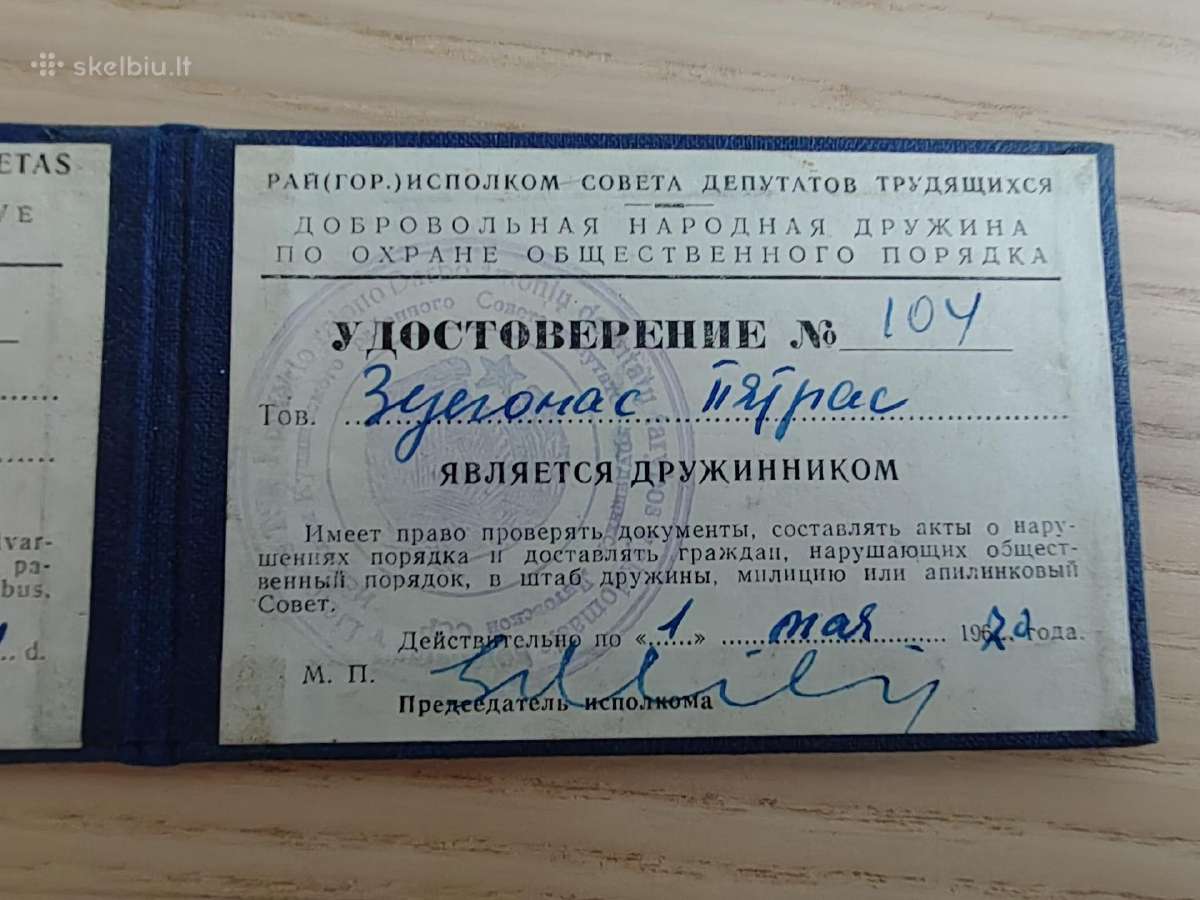 skelbiu.lt
ETAS
VE
РАЙ(ГОР.)ИСПОЛКОМ СОВЕТА ДЕПУТАТОВ ТРУДЯЩИХСЯ
ДОБРОВОЛЬНАЯ НАРОДНАЯ ДРУЖИНА
ПО ОХРАНЕ ОБЩЕСТВЕННОГО ПОРЯДКА
УДОСТОВЕРЕНИЕ № 104
Тов. Пятрас
ЯВЛЯЕТСЯ ДРУЖИННИКОМ
Имеет право проверять документы, составлять акты о нару-
шениях порядка и доставлять граждан, нарушающих общест-
венный порядок, в штаб дружины, милицию или апилинковый
Совет.
Действительно по «1» мая 1972 года.
М. П.
Председатель исполкома
var-
pa-
bus,
d.